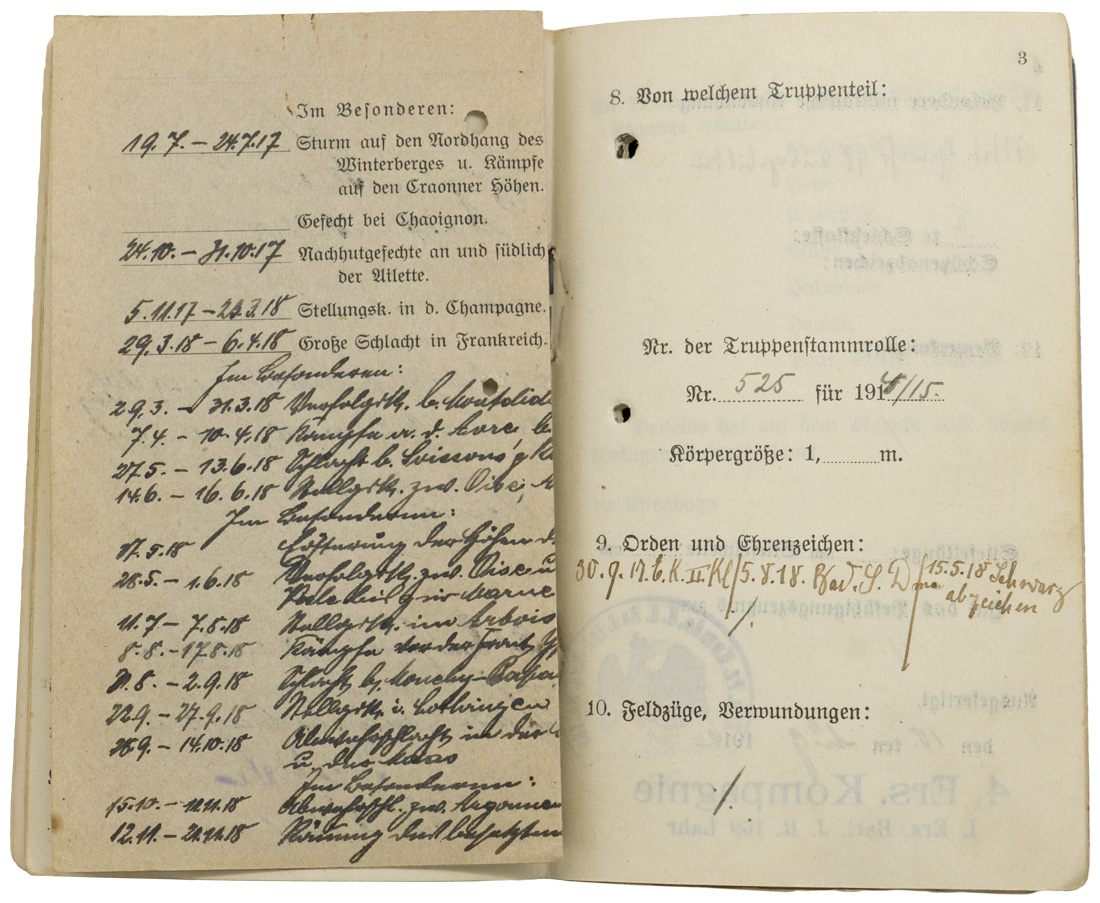 Im Besonderen:
19. 7. – 24.7.17 Sturm auf den Nordhang des
Winterberges u. Kämpfe
auf den Craonner Höhen.
Gefecht bei Chavignon.
24.10. – 31.10.17 Nachhutgefechte an und südlich
der Ailette.
5.11.17 – 23.3.18 Stellungsk. in d. Champagne.
29.3.18 – 6.4.18 Große Schlacht in Frankreich.
Im Besonderen:
29.3. – 31.3.18 Verfolgsk. b. Montdid
7.4. – 10.4.18 Kämpfe a. d. Avre
27.5. – 13.6.18 Schlacht b. Soissons
14.6. – 16.6.18 Stellgsk. zw. Oise
Im Besonderen:
27.5.18 Erstürmung der Höhen
28.5. – 1.6.18 Verfolgsk. zw. Oise u
bis zur Marne
11.7 – 7.8.18 Stellgsk. im Artois
8.8. – 17.8.18 Kämpfe vor der Front
31.8. – 2.9.18 Schlacht b. Monchy-Bapau
22.9. – 27.9.18 Stellgsk. i. Lothringen
28.9. – 14.10.18 Abwehrschlacht in der
u. der Maas
Im Besonderen:
15.10. – 11.11.18 Abwehrschl. zw. Argonnen
12.11. – 21.11.18 Räumung des besetzten
3
8. Von welchem Truppenteil:
Nr. der Truppenstammrolle:
Nr. 525 für 1914/15.
Körpergröße: 1, m.
9. Orden und Ehrenzeichen:
30.9.17. E.K. II Kl / 5.8.18. Bad. S. / 15.5.18 Schwarz
abzeichen
10. Feldzüge, Verwundungen: